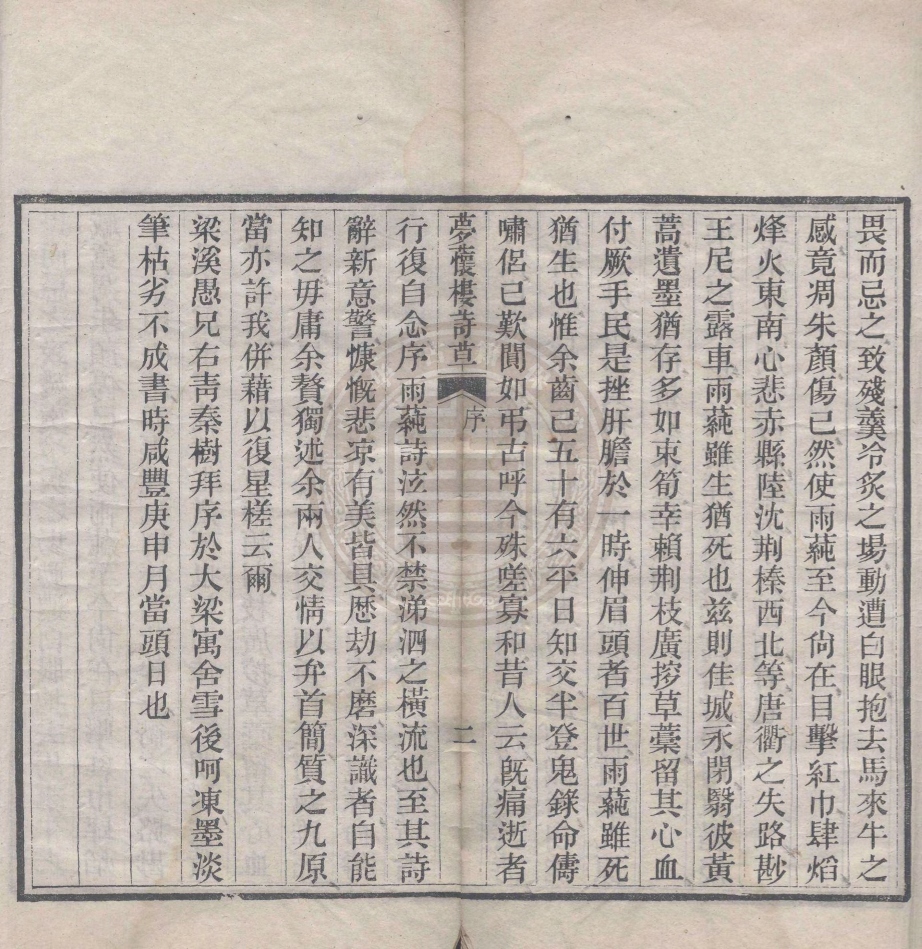 畏而忌之致殘羹冷炙之場動遭白眼抱去馬來牛之
感竟凋朱顏傷已然使雨蒓至今尙在目擊紅巾肆熖
烽火東南心悲赤縣陸沈荆榛西北等唐衢之失路尠
王尼之露車雨蒓雖生猶死也茲則佳城永閉翳彼黃
蒿遺墨猶存多如束筍幸賴荆枝廣搜草藁留其心血
付厥手民是挫肝膽於一時伸眉頭者百世雨蒓雖死
猶生也惟余齒已五十有六平日知交半登鬼錄命儔
嘯侶已歎閴如弔古呼今殊嗟寡和昔人云旣痛逝者
夢蘐樓詩草 序 二
行復自念序雨蒓詩泫然不禁涕泗之橫流也至其詩
辭新意警慷慨悲凉有美皆具歷劫不磨深識者自能
知之毋庸余贅獨述余兩人交情以弁首簡質之九原
當亦許我併藉以復星槎云爾
梁溪愚兄右靑秦樹拜序於大梁寓舍雪後呵凍墨淡
筆枯劣不成書時咸豐庚申月當頭日也